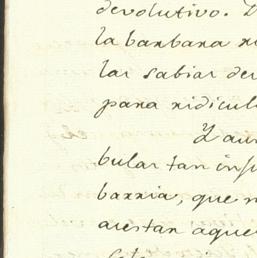 devolutivo. D
la barbara
las sabias de
para ridicul
Y aun
bular tan ins
barria, que
arestan aque